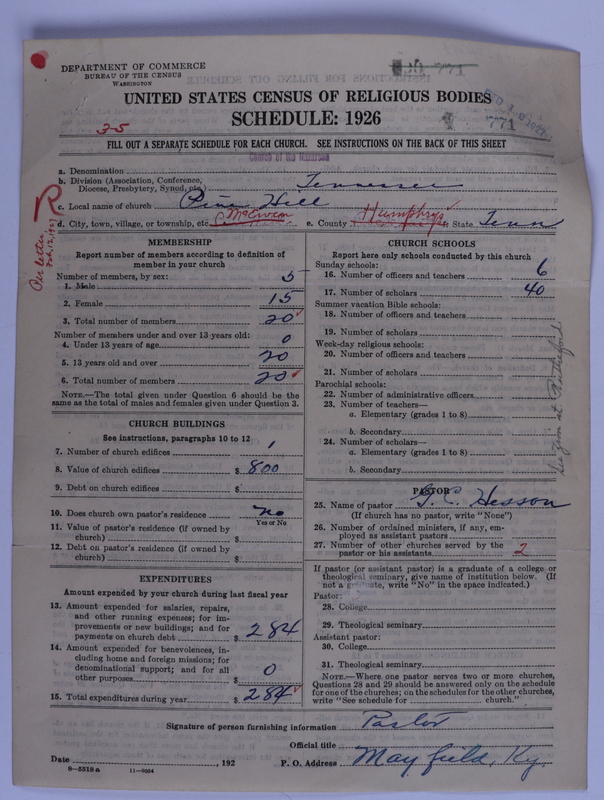 DEPARTMENT OF COMMERCE
BUREAU OF THE CENSUS
WASHINGTON
UNITED STATES CENSUS OF RELIGIOUS BODIES
SCHEDULE: 1926
35
771
FILL OUT A SEPARATE SCHEDULE FOR EACH CHURCH. SEE INSTRUCTIONS ON THE BACK OF THIS SHEET
Church of the Nazarene
a. Denomination
b. Division (Association, Conference, Diocese, Presbytery, Synod, etc.) Tennessee
c. Local name of church Pine Hill
d. City, town, village, or township, etc. McEwen e. County Humphrys f. State Tenn
R
Our letter
Feb. 12, 1927
MEMBERSHIP
Report number of members according to definition of
member in your church
Number of members, by sex:
1. Male 5
2. Female 15
3. Total number of members 20
Number of members under and over 13 years old:
4. Under 13 years of age 0
5. 13 years old and over 20
6. Total number of members 20
NOTE.—The total given under Question 6 should be
same as the total of males and females given under Question 3.
CHURCH BUILDINGS
See instructions, paragraphs 10 to 12
7. Number of church edifices 1
8. Value of church edifices $ 800
9. Debt on church edifices $
10. Does church own pastor's residence no
Yes or No
11. Value of pastor's residence (if owned by
church) $
12. Debt on pastor's residence (if owned by
church) $
EXPENDITURES
Amount expended by your church during last fiscal year
13. Amount expended for salaries, repairs,
and other running expenses; for im-
provements or new buildings; and for
payments on church debt $ 284
14. Amount expended for benevolences, in-
cluding home and foreign missions; for
denominational support; and for all
other purposes $ 0
15. Total expenditures during year $ 284
CHURCH SCHOOLS
Report here only schools conducted by this church
Sunday schools:
16. Number of officers and teachers 6
17. Number of scholars 40
Summer vacation Bible schools:
18. Number of officers and teachers
19. Number of scholars
Week-day religious schools:
20. Number of officers and teachers
21. Number of scholars
Parochial schools:
22. Number of administrative officers
23. Number of teachers—
a. Elementary (grades 1 to 8)
b. Secondary
24. Number of scholars—
a. Elementary (grades 1 to 8)
b. Secondary
PASTOR
25. Name of pastor G. C. Hesson
(If church has no pastor, write "None")
26. Number of ordained ministers, if any, em-
ployed as assistant pastors
27. Number of other churches served by the
pastor or his assistants 2
If pastor (or assistant pastor) is a graduate of a college or
theological seminary, give name of institution below. (If
not a graduate, write "No" in the space indicated.)
Pastor:
28. College
29. Theological seminary
Assistant pastor:
30. College
31. Theological seminary
NOTE.—Where one pastor serves two or more churches,
Questions 28 and 29 should be answered only on the schedule
for one of the churches; on the schedules for the other churches,
write "See schedule for church."
Signature of person furnishing information Pastor
Official title
Date , 192 P. O. Address Mayfield, Ky.
8—5518 a 11—9064